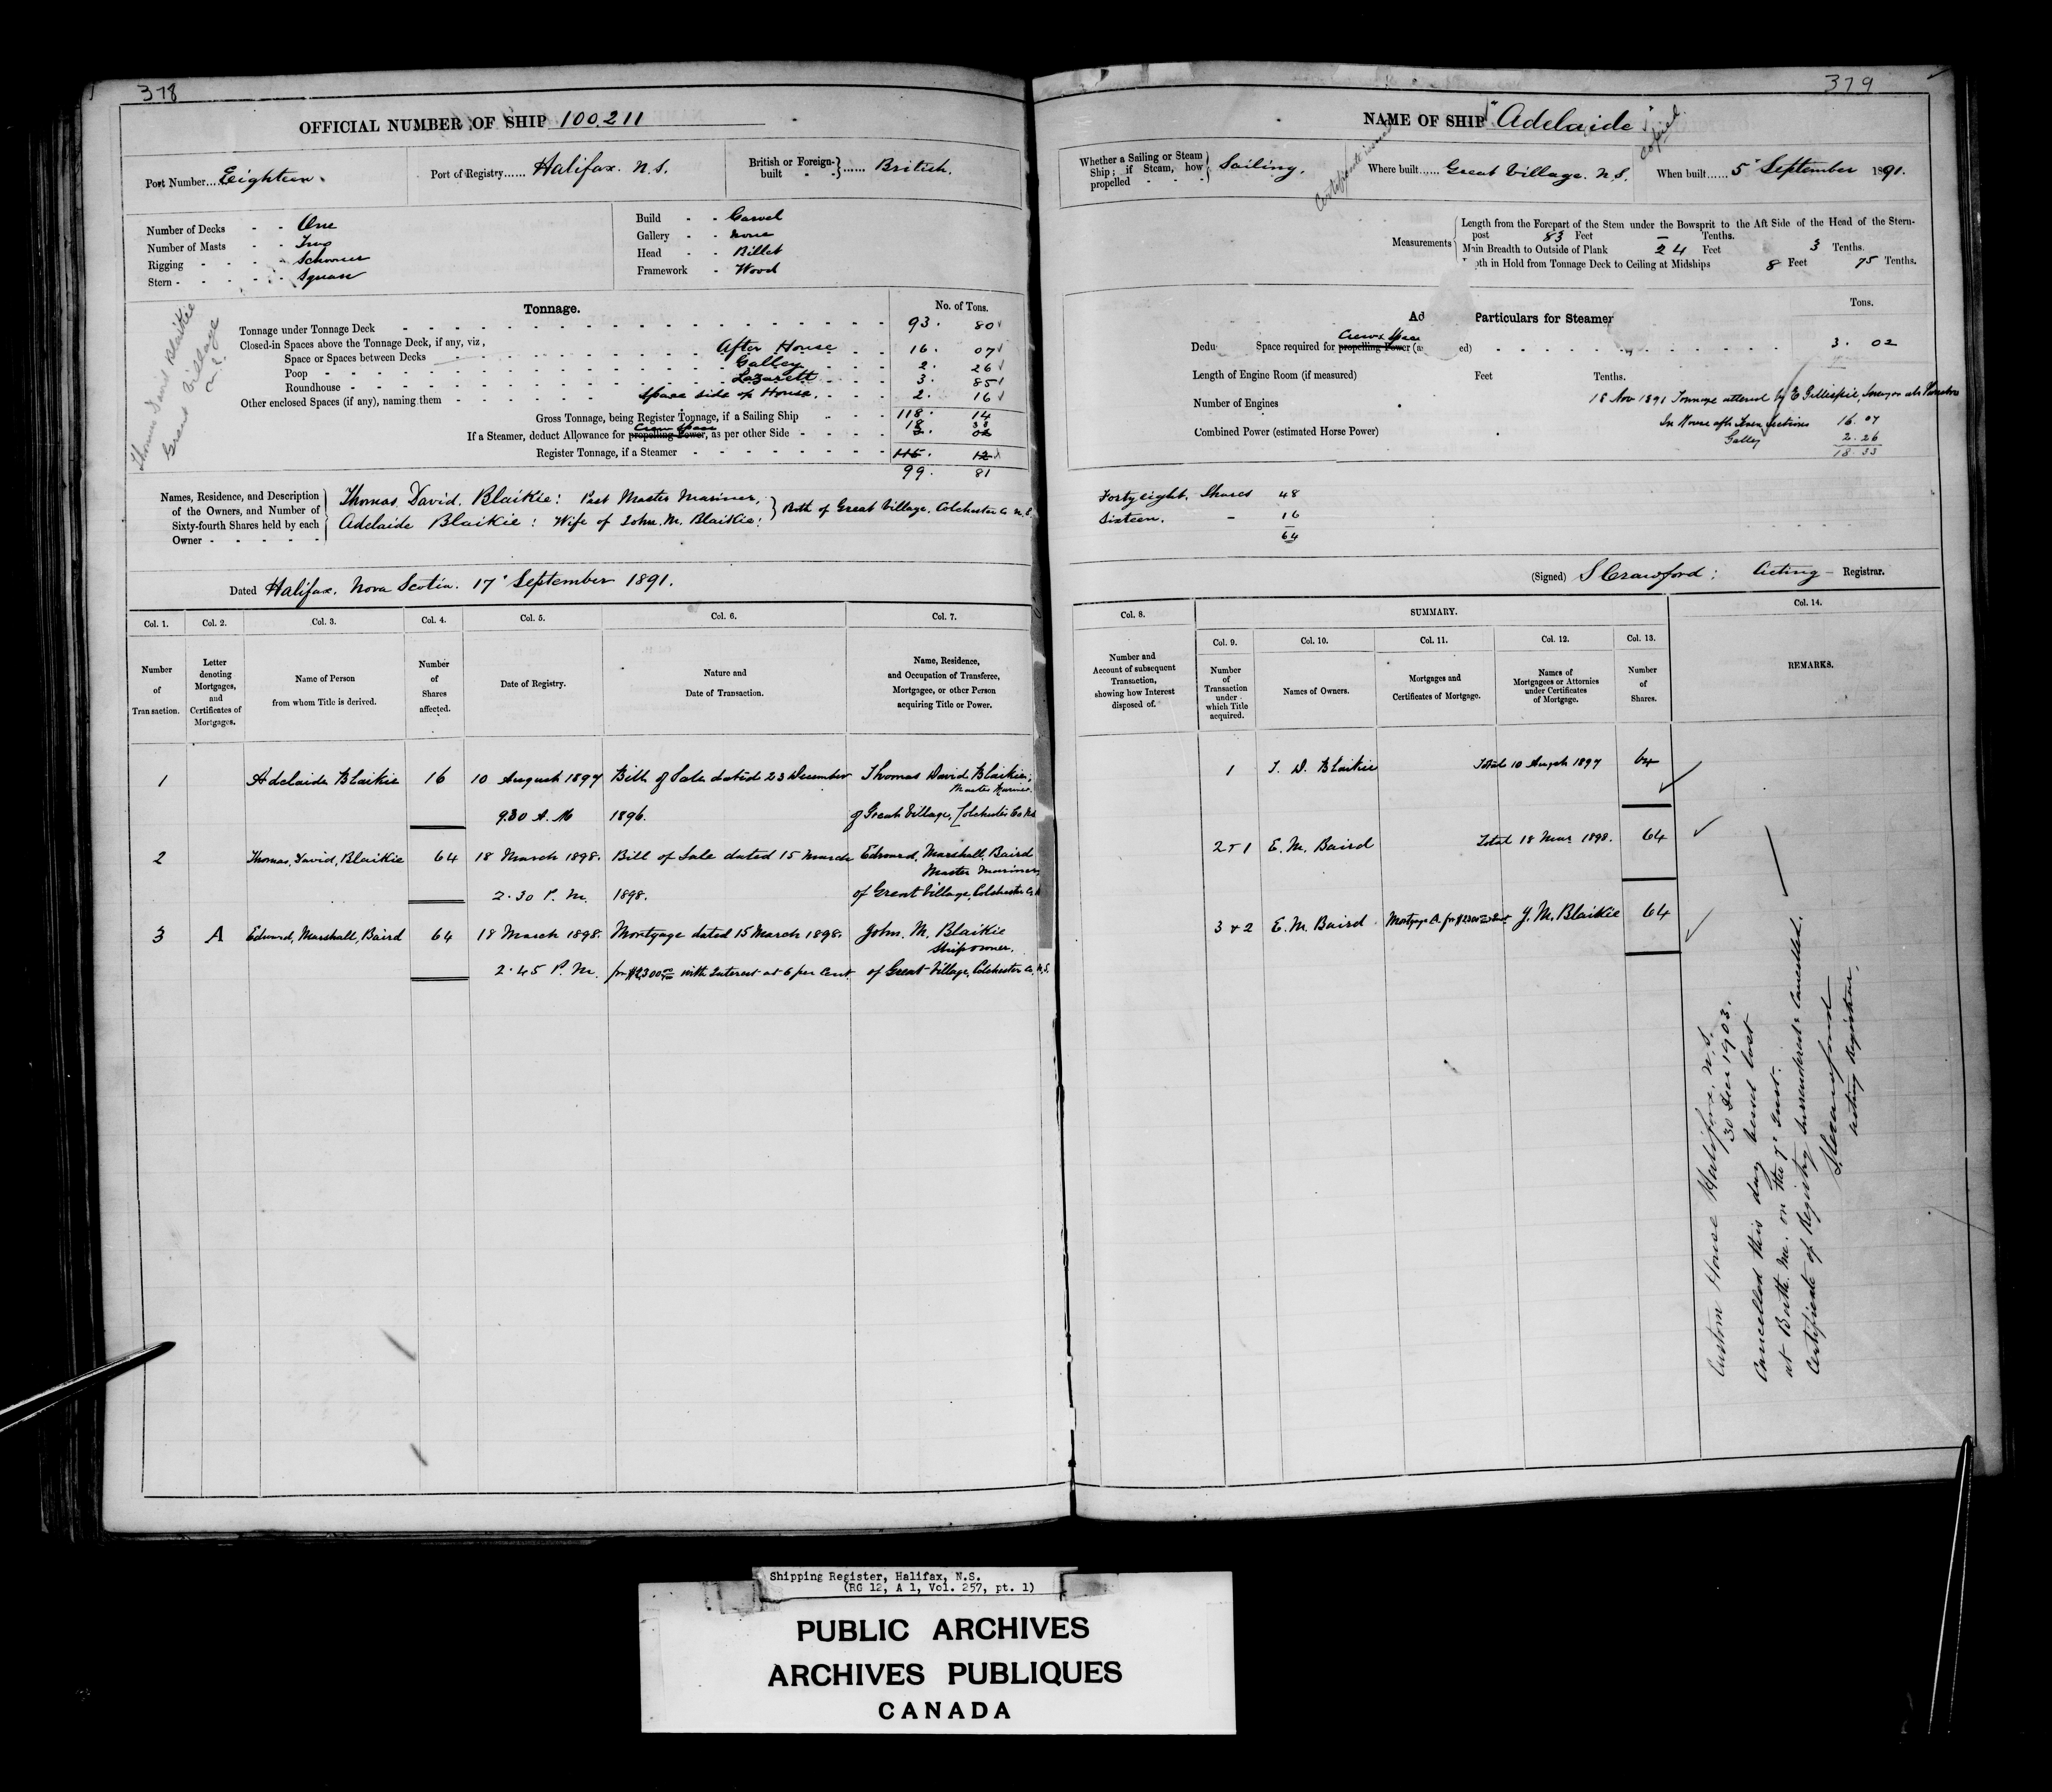 378
OFFICIAL NUMBER OF SHIP 100,211
Port Number....Eighteen.
Port of Registry......Halifax. N.S.
British or Foreign-built - - ......British.
Number of Decks - - One
Number of Masts - - Two
Rigging - - - - Schooner
Stern - - - - - Square
Build - - Carvel
Gallery - - None
Head - - Billet
Framework - Wood
Thomas David Blaikie
Great Village
N.S.
Tonnage.
No. of Tons.
Tonnage under Tonnage Deck 93. 80
Closed-in Spaces above the Tonnage Deck, if any, viz,
Space or Spaces between Decks After House 16. 07
Poop Galley 2. 26
Roundhouse Lazarett 3. 85
Other enclosed Spaces (if any), naming them Space side of House. 2. 16
Gross Tonnage, being Register Tonnage, if a Sailing Ship 118. 14
Crew Space 18 33
If a Steamer, deduct Allowance for propelling Power, as per other Side 3. 02
Register Tonnage, if a Steamer 115. 12
99. 81
Names, Residence, and Description of the Owners, and Number of Sixty-fourth Shares held by each Owner - - - - -
Thomas David Blaikie: Part Master Mariner,
Adelaide Blaikie: Wife of John. M. Blaikie:
Both of Great Village, Colchester Co N.S.
Dated Halifax. Nova Scotia. 17' September 1891.
Col. 1. Col. 2. Col. 3. Col. 4. Col. 5. Col. 6. Col. 7.
Number of Transaction.
Letter denoting Mortgages, and Certificates of Mortgages.
Name of Person from whom Title is derived.
Number of Shares affected.
Date of Registry.
Nature and Date of Transaction.
Name, Residence, and Occupation of Transferee, Mortgagee, or other Person acquiring Title or Power.
1 Adelaide Blaikie 16 10 August 1897 Bill of Sale dated 23 December Thomas David Blaikie,
Master Mariner
9.30 A. M 1896. of Great Village, Colchester Co NS
2 Thomas, David, Blaikie 64 18 March 1898. Bill of Sale dated 15 March Edward, Marshall, Baird
Master Mariner
2.30 P. M. 1898. of Great Village, Colchester Co
3 A Edward, Marshall, Baird 64 18 March 1898. Mortgage dated 15 March 1898. John. M. Blaikie
Shipowner.
2.45 P. M. for $2300 00 with Interest at 6 per Cent. of Great Village, Colchester Co. N.S.
379
NAME OF SHIP "Adelaide"
Copied
Whether a Sailing or Steam Ship; if Steam, how propelled - - - Sailing.
Where built......Great Village. N.S.
When built......5' September 1891.
Measurements
Length from the Forepart of the Stem under the Bowsprit to the Aft Side of the Head of the Stern-
post 83 Feet – Tenths.
Main Breadth to Outside of Plank 24 Feet 3 Tenths.
pth in Hold from Tonnage Deck to Ceiling at Midships 8 Feet 75 Tenths.
Tons.
Ad Particulars for Steamer
Crews Space
Dedu Space required for propelling Power (a ed) 3. 02
Length of Engine Room (if measured) Feet Tenths.
18 Nov 1891 Tonnage altered by E Gillespie, Surveyor
Number of Engines
In House aft 16. 07
Combined Power (estimated Horse Power)
Galley 2. 26
18. 33
Forty eight. Shares 48
Sixteen. – 16
64
(Signed) S Crawford: Acting Registrar.
Col. 8. SUMMARY. Col. 14.
Col. 9. Col. 10. Col. 11. Col. 12. Col. 13.
Number and Account of subsequent Transaction, showing how Interest disposed of.
Number of Transaction under which Title acquired.
Names of Owners.
Mortgages and Certificates of Mortgage.
Names of Mortgagees or Attornies under Certificates of Mortgage.
Number of Shares.
REMARKS.
1 T. D. Blaikie Total 10 August 1897 64
2 & 1 E. M. Baird Total 18 Mar. 1898. 64
3 & 2 E. M. Baird Mortgage A. for $2300 00 J. M. Blaikie 64
Custom House Halifax, N.S.
30 Dec 1903.
Cancelled this day vessel lost
at Booth. Me. on the 7' Inst.
Certificate of Registry surrendered & cancelled.
S. Crawford
Acting Registrar.
Shipping Register, Halifax, N.S.
(RG 12, A 1, Vol. 257, pt. 1)
PUBLIC ARCHIVES
ARCHIVES PUBLIQUES
CANADA